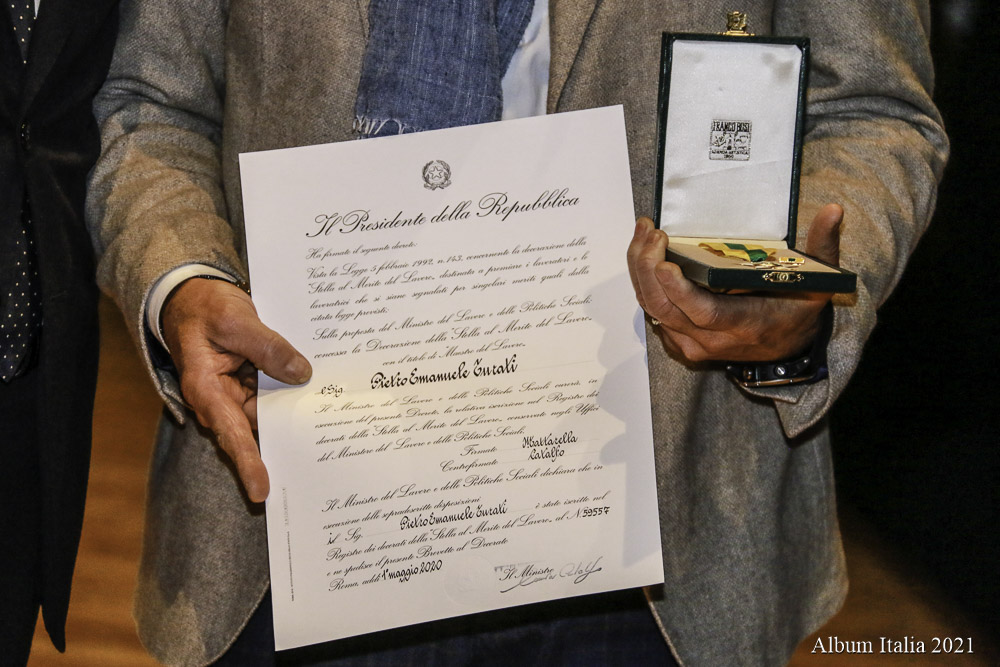 Il Presidente della Repubblica
Ha firmato il seguente decreto:
Vista la Legge 5 febbraio 1992, n. 143, concernente la decorazione della
"Stella al Merito del Lavoro", destinata a premiare i lavoratori e le
lavoratrici che si siano segnalati per singolari meriti quali dalla
citata legge previsti.
Sulla proposta del Ministro del Lavoro e delle Politiche Sociali:
concessa la Decorazione della "Stella al Merito del Lavoro",
con il titolo di Maestro del Lavoro,
al Sig. Pietro Emanuele Turati
Il Ministro del Lavoro e delle Politiche Sociali curerà, in
esecuzione del presente Decreto, la relativa iscrizione nel Registro dei
decorati della "Stella al Merito del Lavoro", conservato negli Uffici
del Ministero del Lavoro e delle Politiche Sociali.
Firmato Mattarella
Controfirmato Catalfo
Il Ministro del Lavoro e delle Politiche Sociali dichiara che in
esecuzione delle sopradescritte disposizioni
il Sig. Pietro Emanuele Turati è stato iscritto nel
Registro dei decorati della "Stella al Merito del Lavoro", al N. 59557
e ne spedisce il presente Brevetto al Decorato
Roma, addì 1° maggio 2020
Il Ministro
FRANCO BOSI
1960
Album Italia 2021